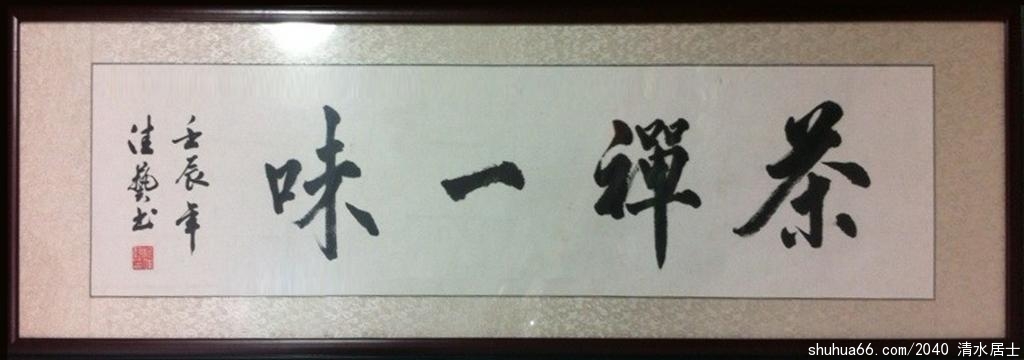 茶禪一味
壬辰年
佳藝书
shuhua66.com/2040 清水居士